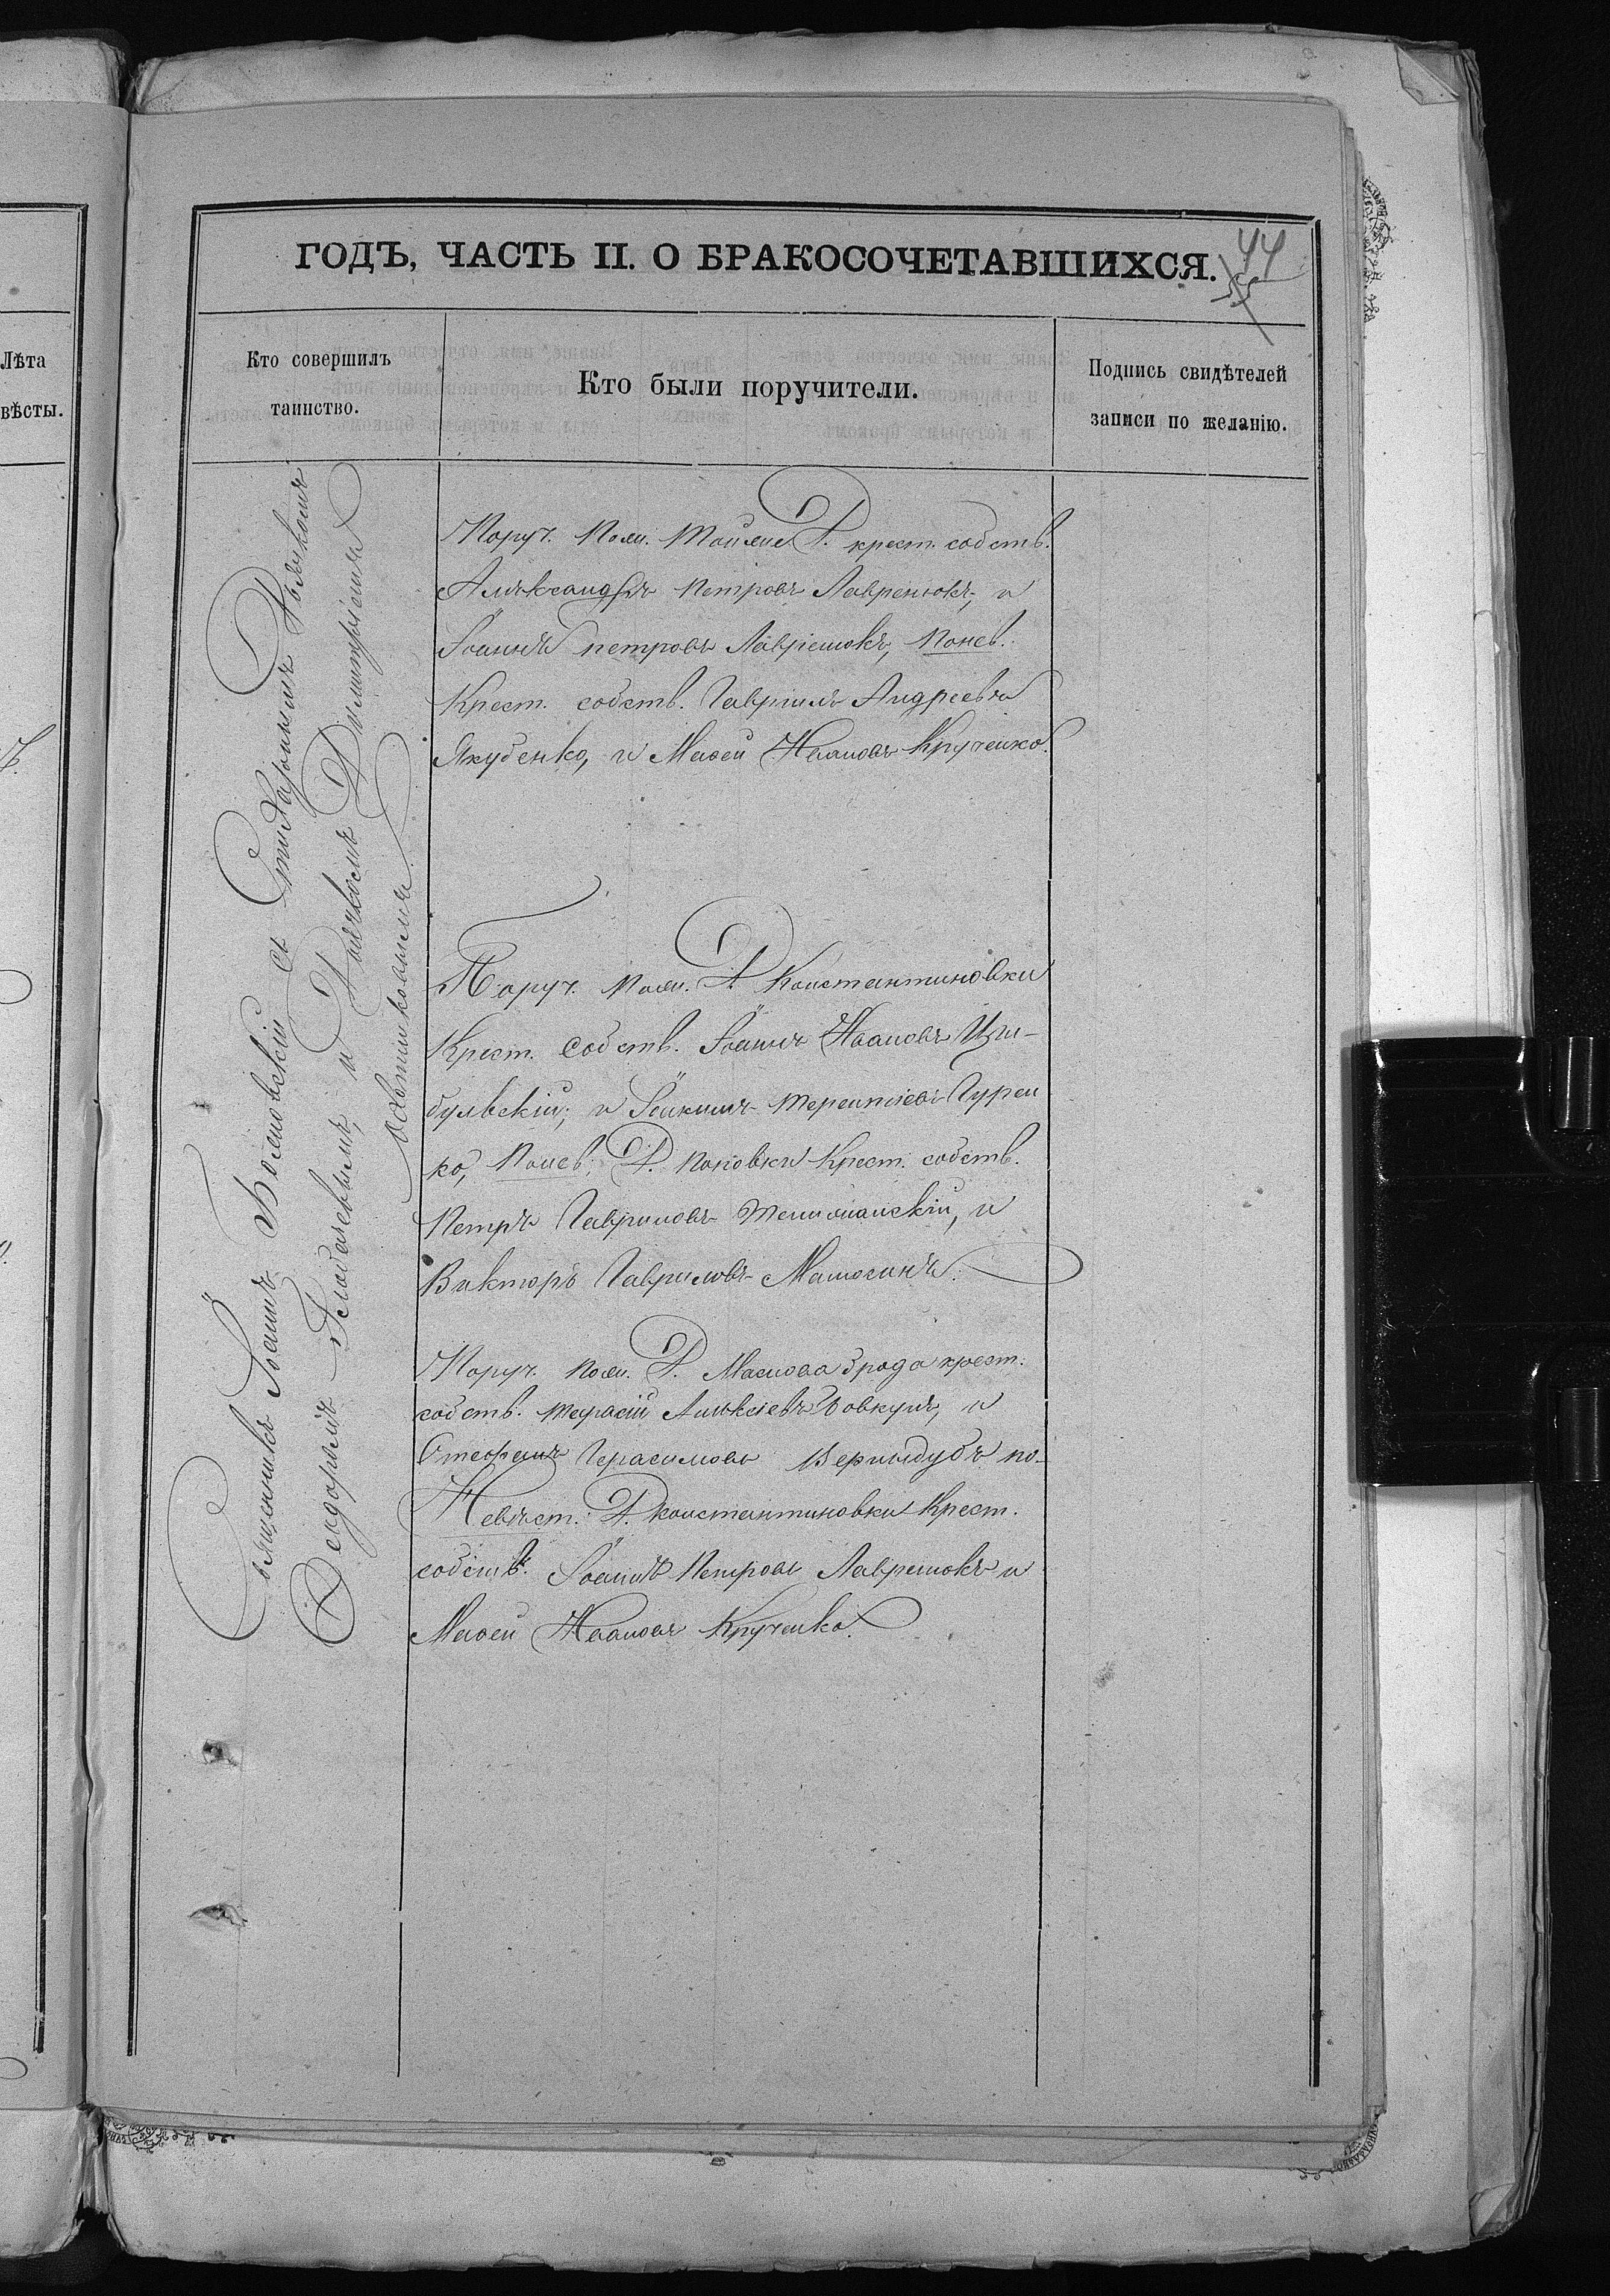 ГОДЪ, ЧАСТЬ II. О БРАКОСОЧЕТАВШИХСЯ.
44
Лѣта
вѣсты.
Кто совершилъ
таинство.
Кто были поручители.
Подпись свидѣтелей
записи по желанію.
Священникъ Іоаннъ съ Стихарнымъ Дьячкомъ
Ѳеодоромъ и Дьячкомъ Димитріемъ
Поруч. крест. собств.
Александръ Петровъ Лавренюкъ, и
Іоаннъ Петровъ Лавренюкъ, Понев.
Крест. собств. Гавріилъ Андреевъ
Якубенко, и Моѵсей Ивановъ Крученко.
Поруч. Д. Константиновки
Крест. собств. Іоаннъ Ивановъ Цы-
бульскій, и Іоакимъ Терентіевъ Гурен
ко, Понев. Д. Поповки Крест. собств.
Петръ Гавриловъ и
Викторъ Гавриловъ
Поруч. Д. Маслова брода крест.
собств. Тарасій Алексіевъ Вовкунъ, и
Стефанъ Герасимовъ Вернидубъ по-
Невѣст. Д. Константиновки Крест.
собств. Іоаннъ Петровъ Лавренюкъ и
Моѵсей Ивановъ Крученко.